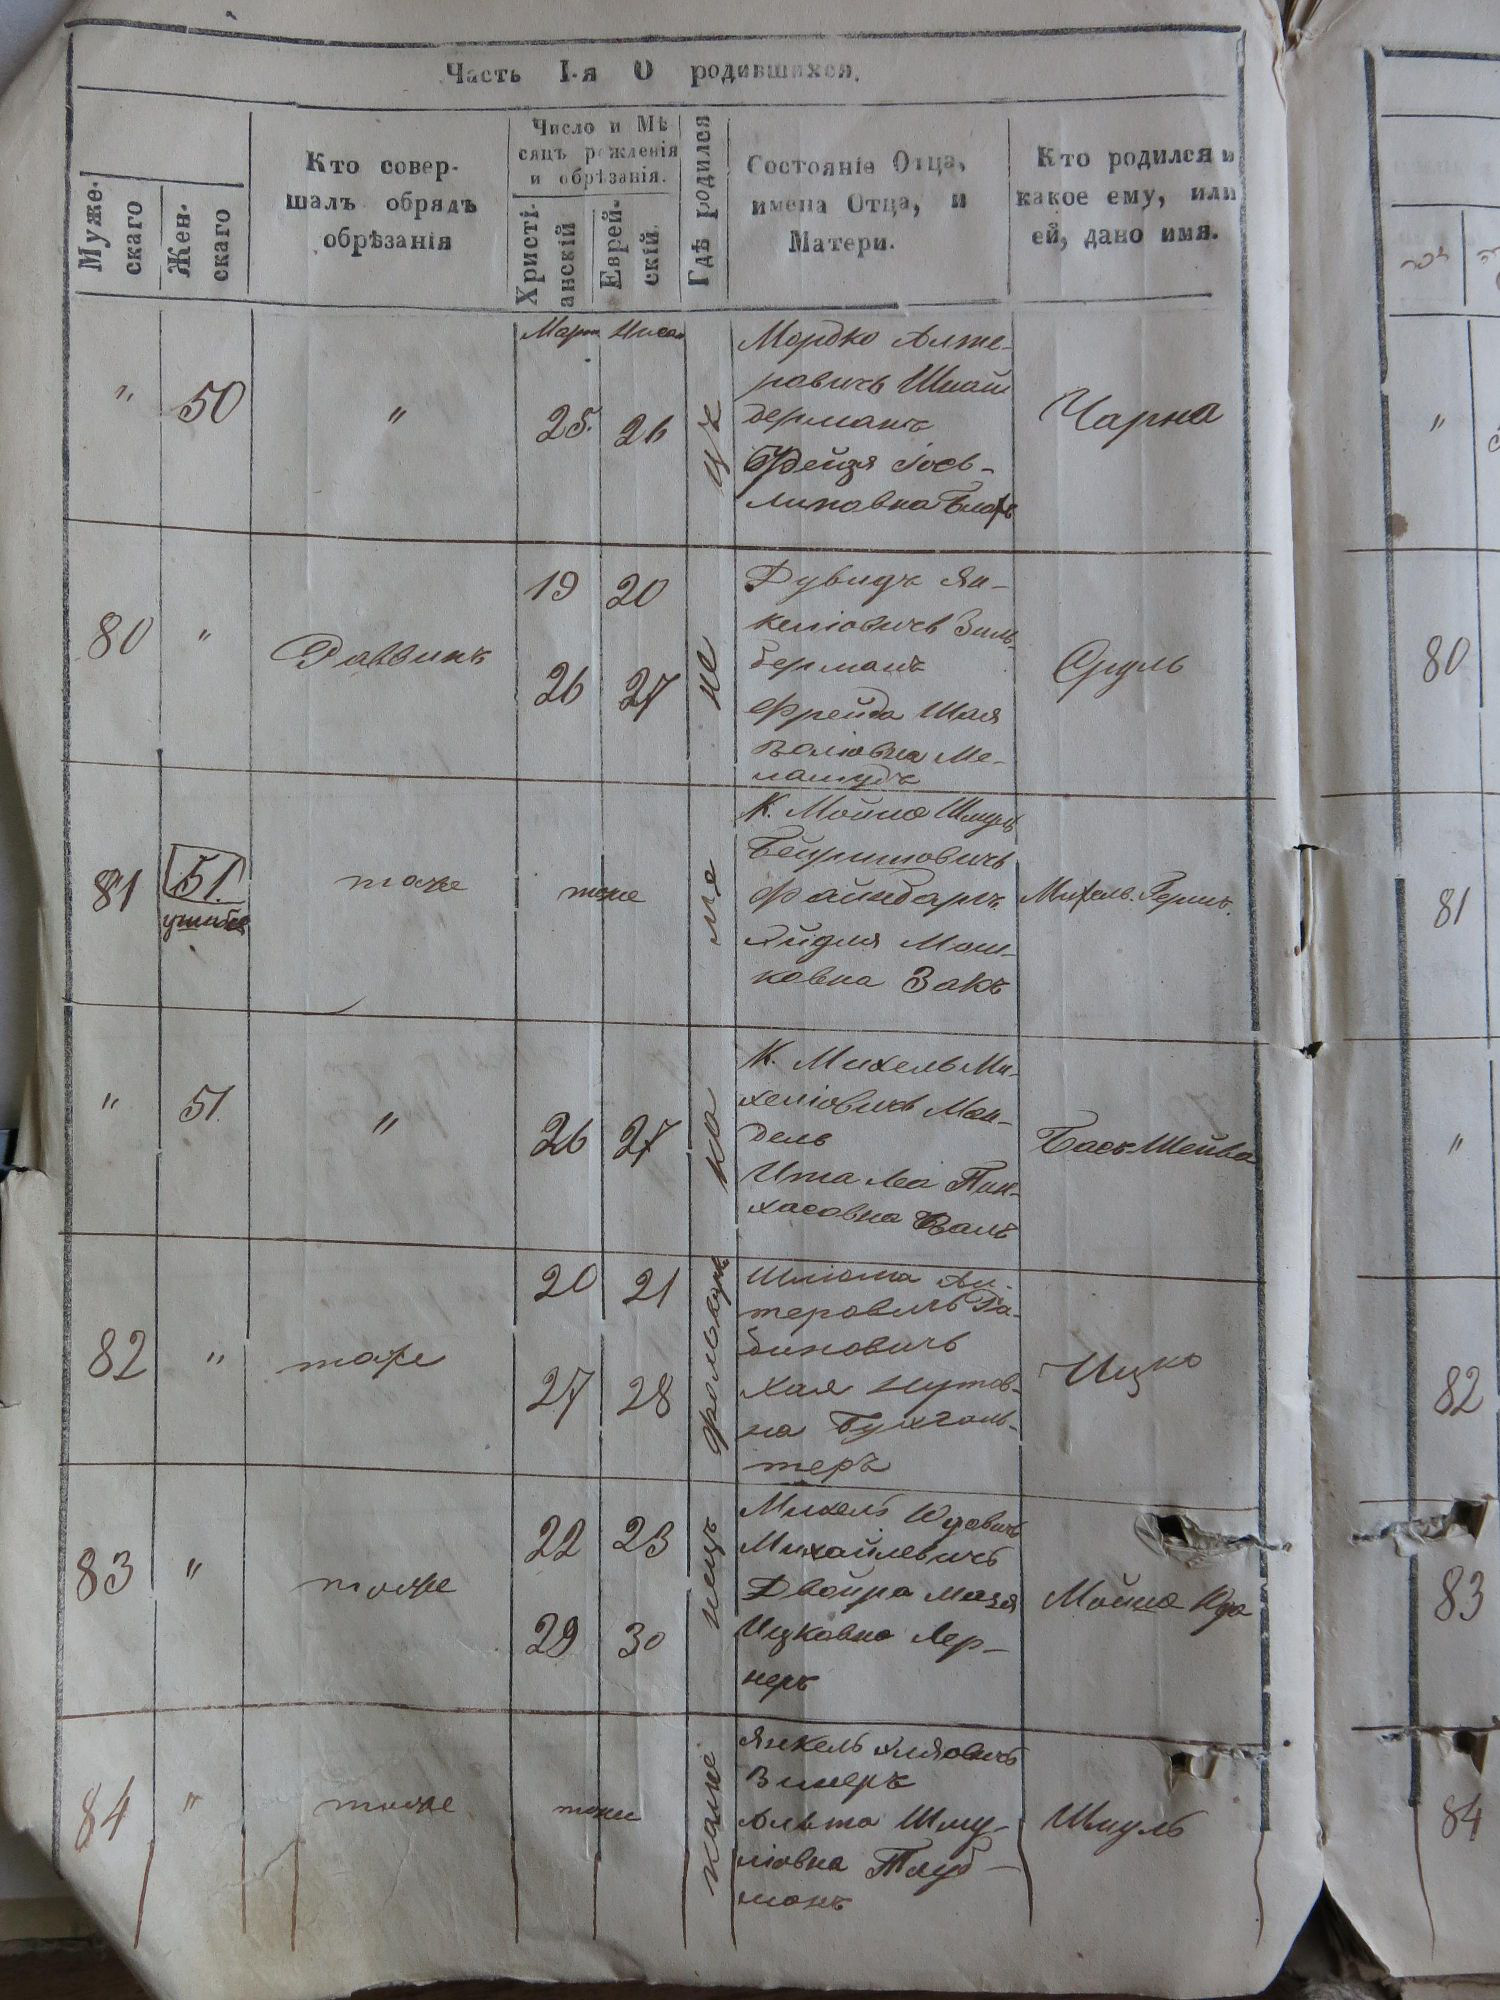 Часть I-я О родившихся.
Муже-
скаго
Жен-
скаго
Кто совер-
шалъ обрядъ
обрѣзанія
Число и Мѣ
сяцъ рожденія
и обрѣзанія.
Христі-
анскій
Еврей-
скій
Гдѣ родился
Состояніе Отца,
имена Отца, и
Матери.
Кто родился и
какое ему, или
ей, дано имя.
Март Нисан
" 50 " 25. 26
Мордко Алте-
ровичъ Шнай
дерманъ
Чарна
80 " Раввинъ
19 20
26 27
Дувидъ Ян-
келіовичъ Зиль-
берманъ
Фрейда Шая
Ме-
ламудъ
Сруль
81 51. тоже тоже
К. Мойше Шмуль
Файнбаръ
Мош-
ковна Закъ
Михель-Гершъ.
" 51. " 26 27
К. Михель Ми-
хеліовичъ Ман-
дель
Ита Леа Пин-
хасовна
Бася-Шейва
82 " тоже
20 21
27 28
Шліома Ал-
теровичъ Ра-
биновичъ
Хая Нутов-
на Бухголь-
теръ
Ицко
83 " тоже
22 23
29 30
Михель Юдовичъ
Михайлевичъ
Двойра
Ицковна Лер-
неръ
Мойше
84 " тоже тоже
Янкель
Винеръ
Шму-
ліовна Тауб-
манъ
Шмуль
"
80
81
"
82
83
84